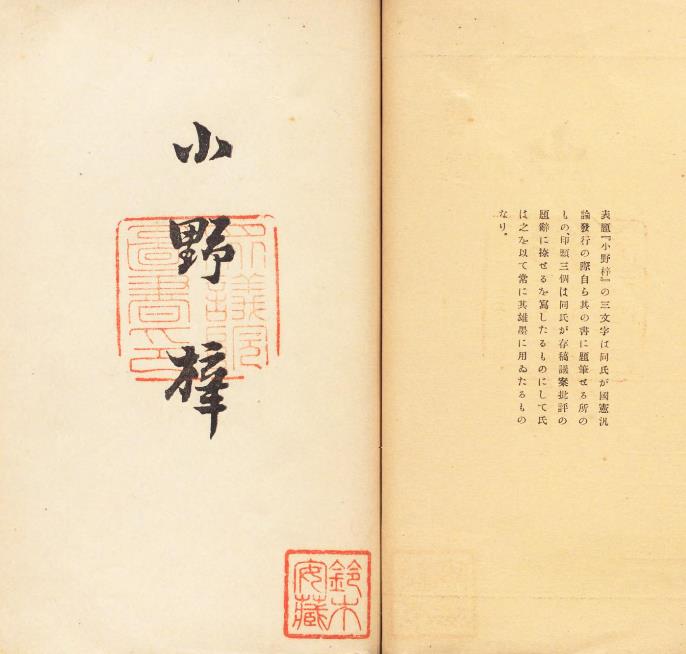 表題『小野梓』の三文字は同氏が國憲汎
論發行の際自ら其の書に題筆せる所の
もの、印顆三個は同氏が存稿議案批評の
題辭に捺せるを寫したるものにして氏
は之を以て常に其雄墨に用ゐたるもの
なり。
小野梓
議院
圖書印
鈴木
安藏